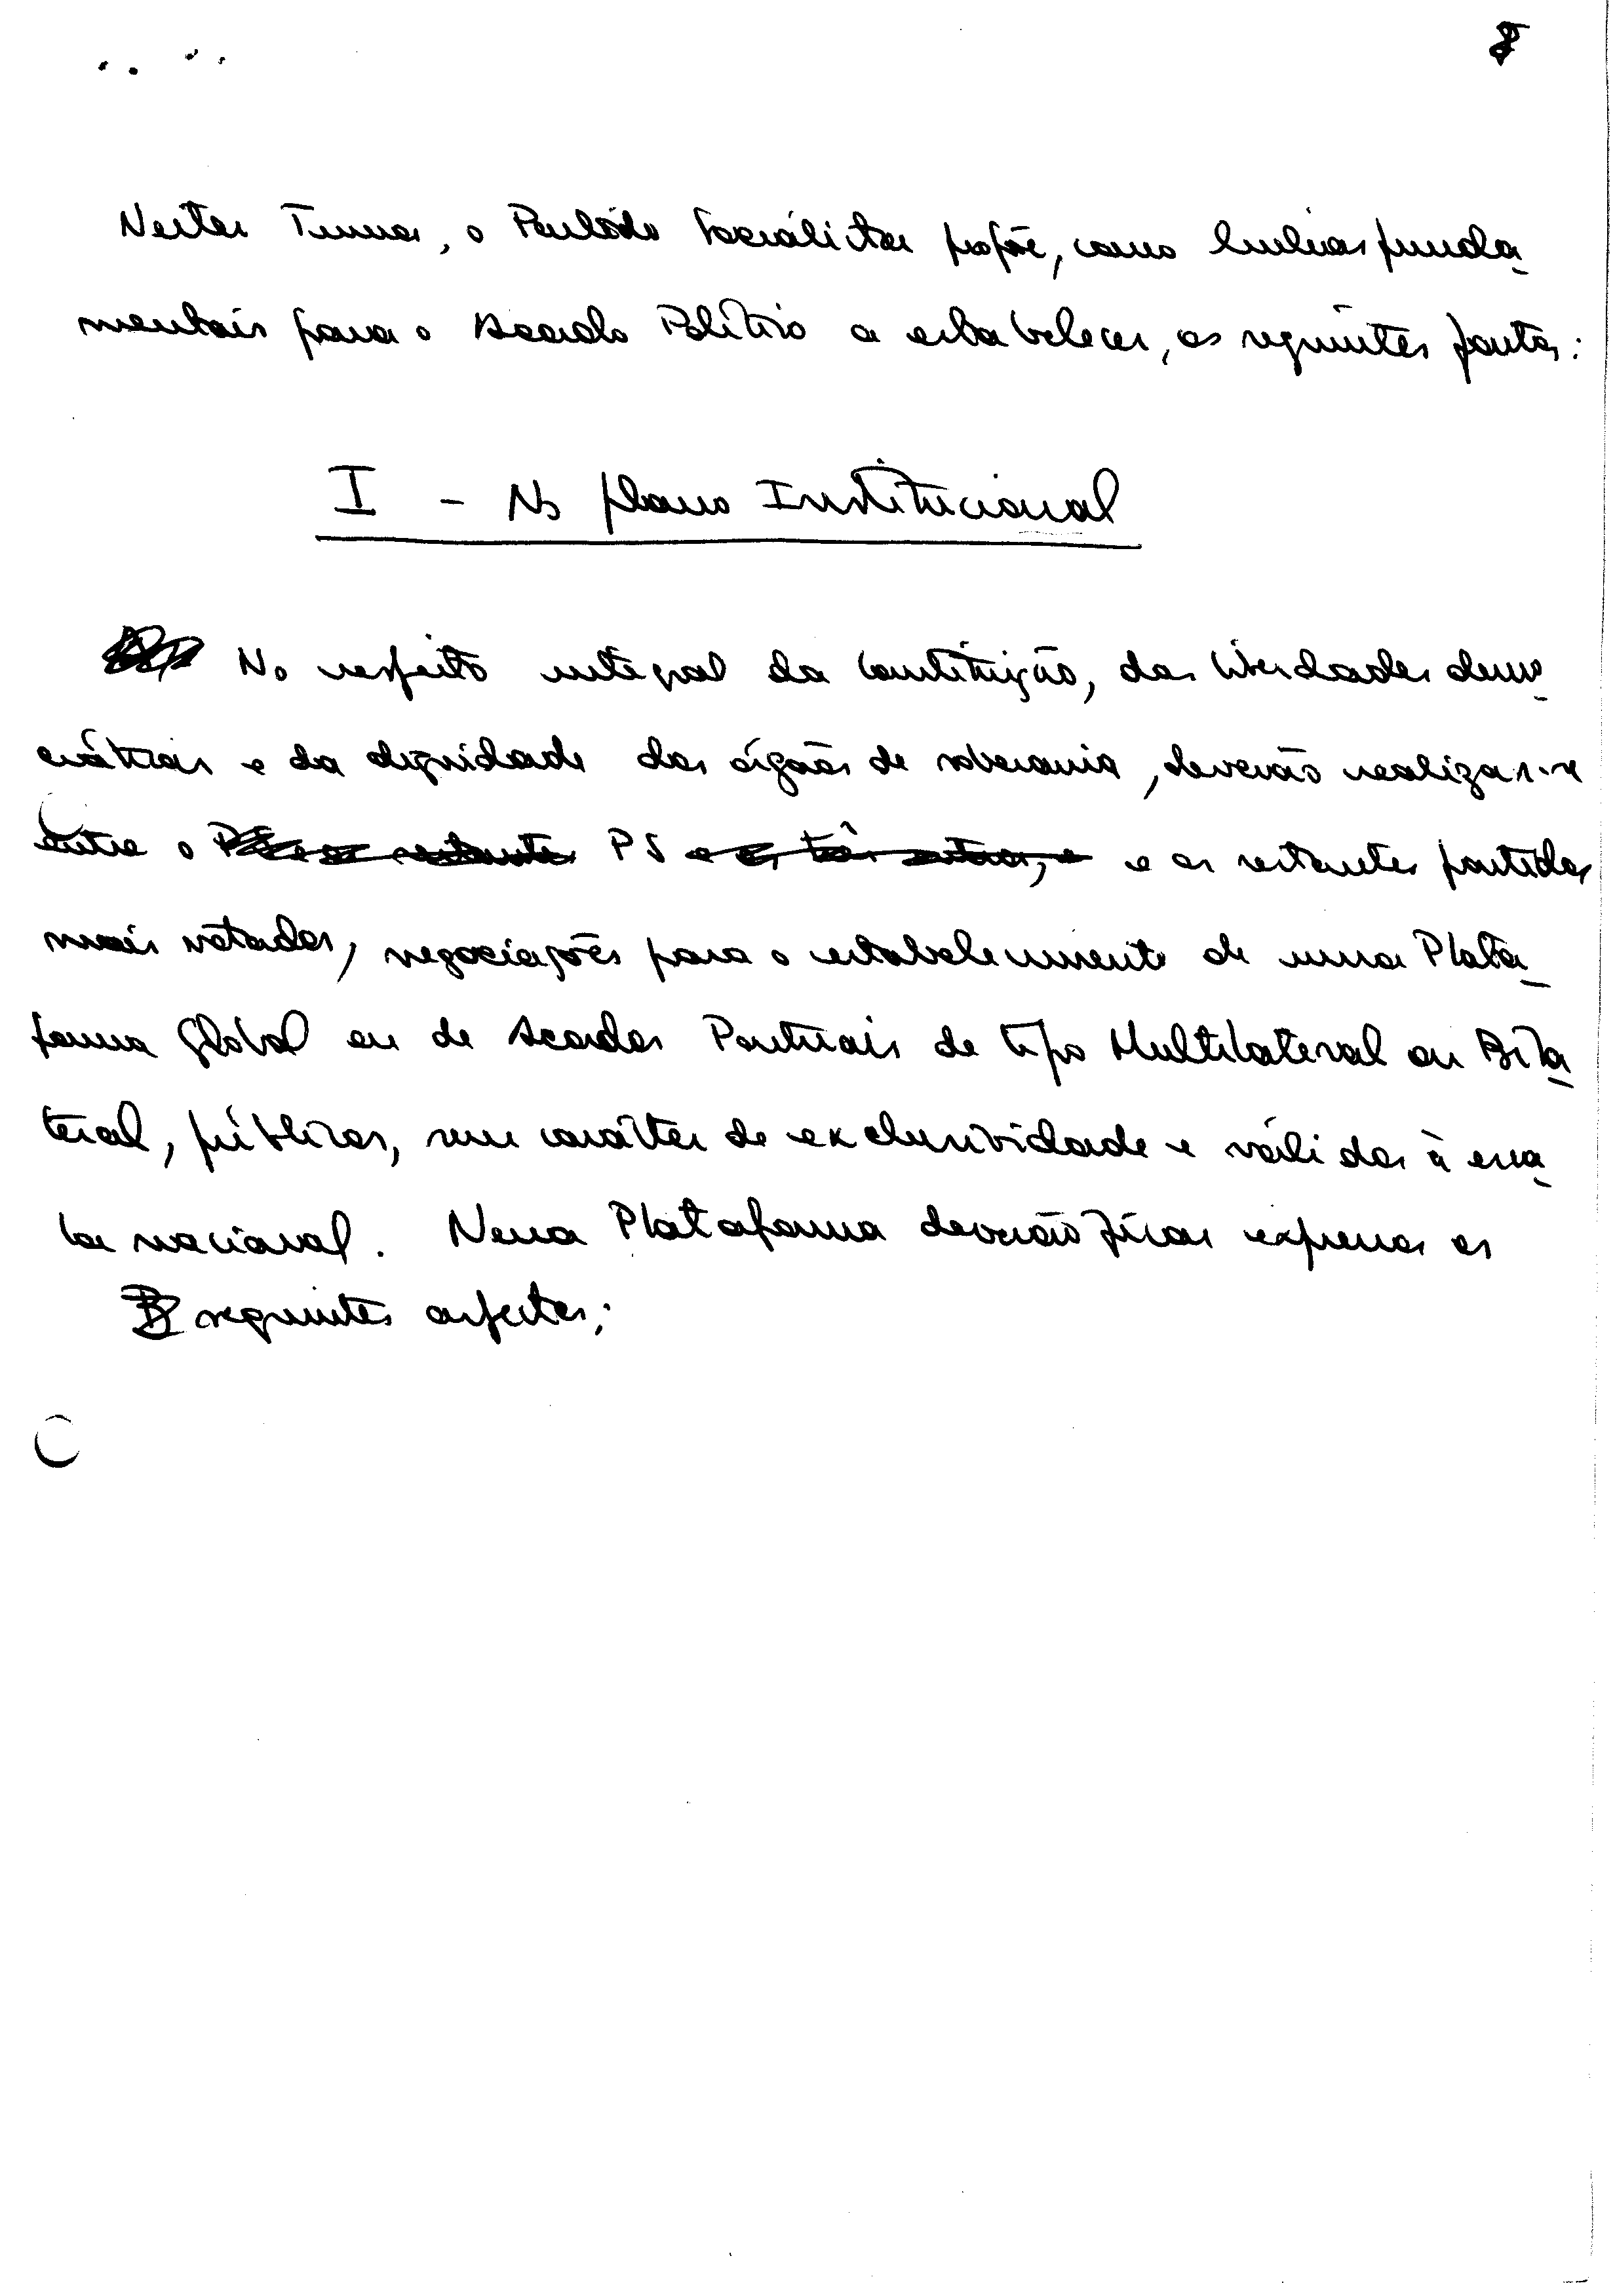 8
Nestes Termos, o Partido Socialista propõe, como linhas funda-
mentais para o Acordo Político a estabelecer, os seguintes pontos:
I - No plano Institucional
No respeito integral da Constituição, das liberdades demo-
cráticas e da dignidade dos órgãos de soberania, deverão realizar-se
entre o PS e os restantes PS e os três outros, e e os restantes partidos
mais votados, negociações para o estabelecimento de uma Plata-
forma Global ou de Acordos Pontuais de tipo Multilateral ou Bila-
teral, públicos, sem carácter de exclusividade e válidos à esca-
la nacional. Nessa Plataforma deverão ficar expressos os
seguintes aspectos: